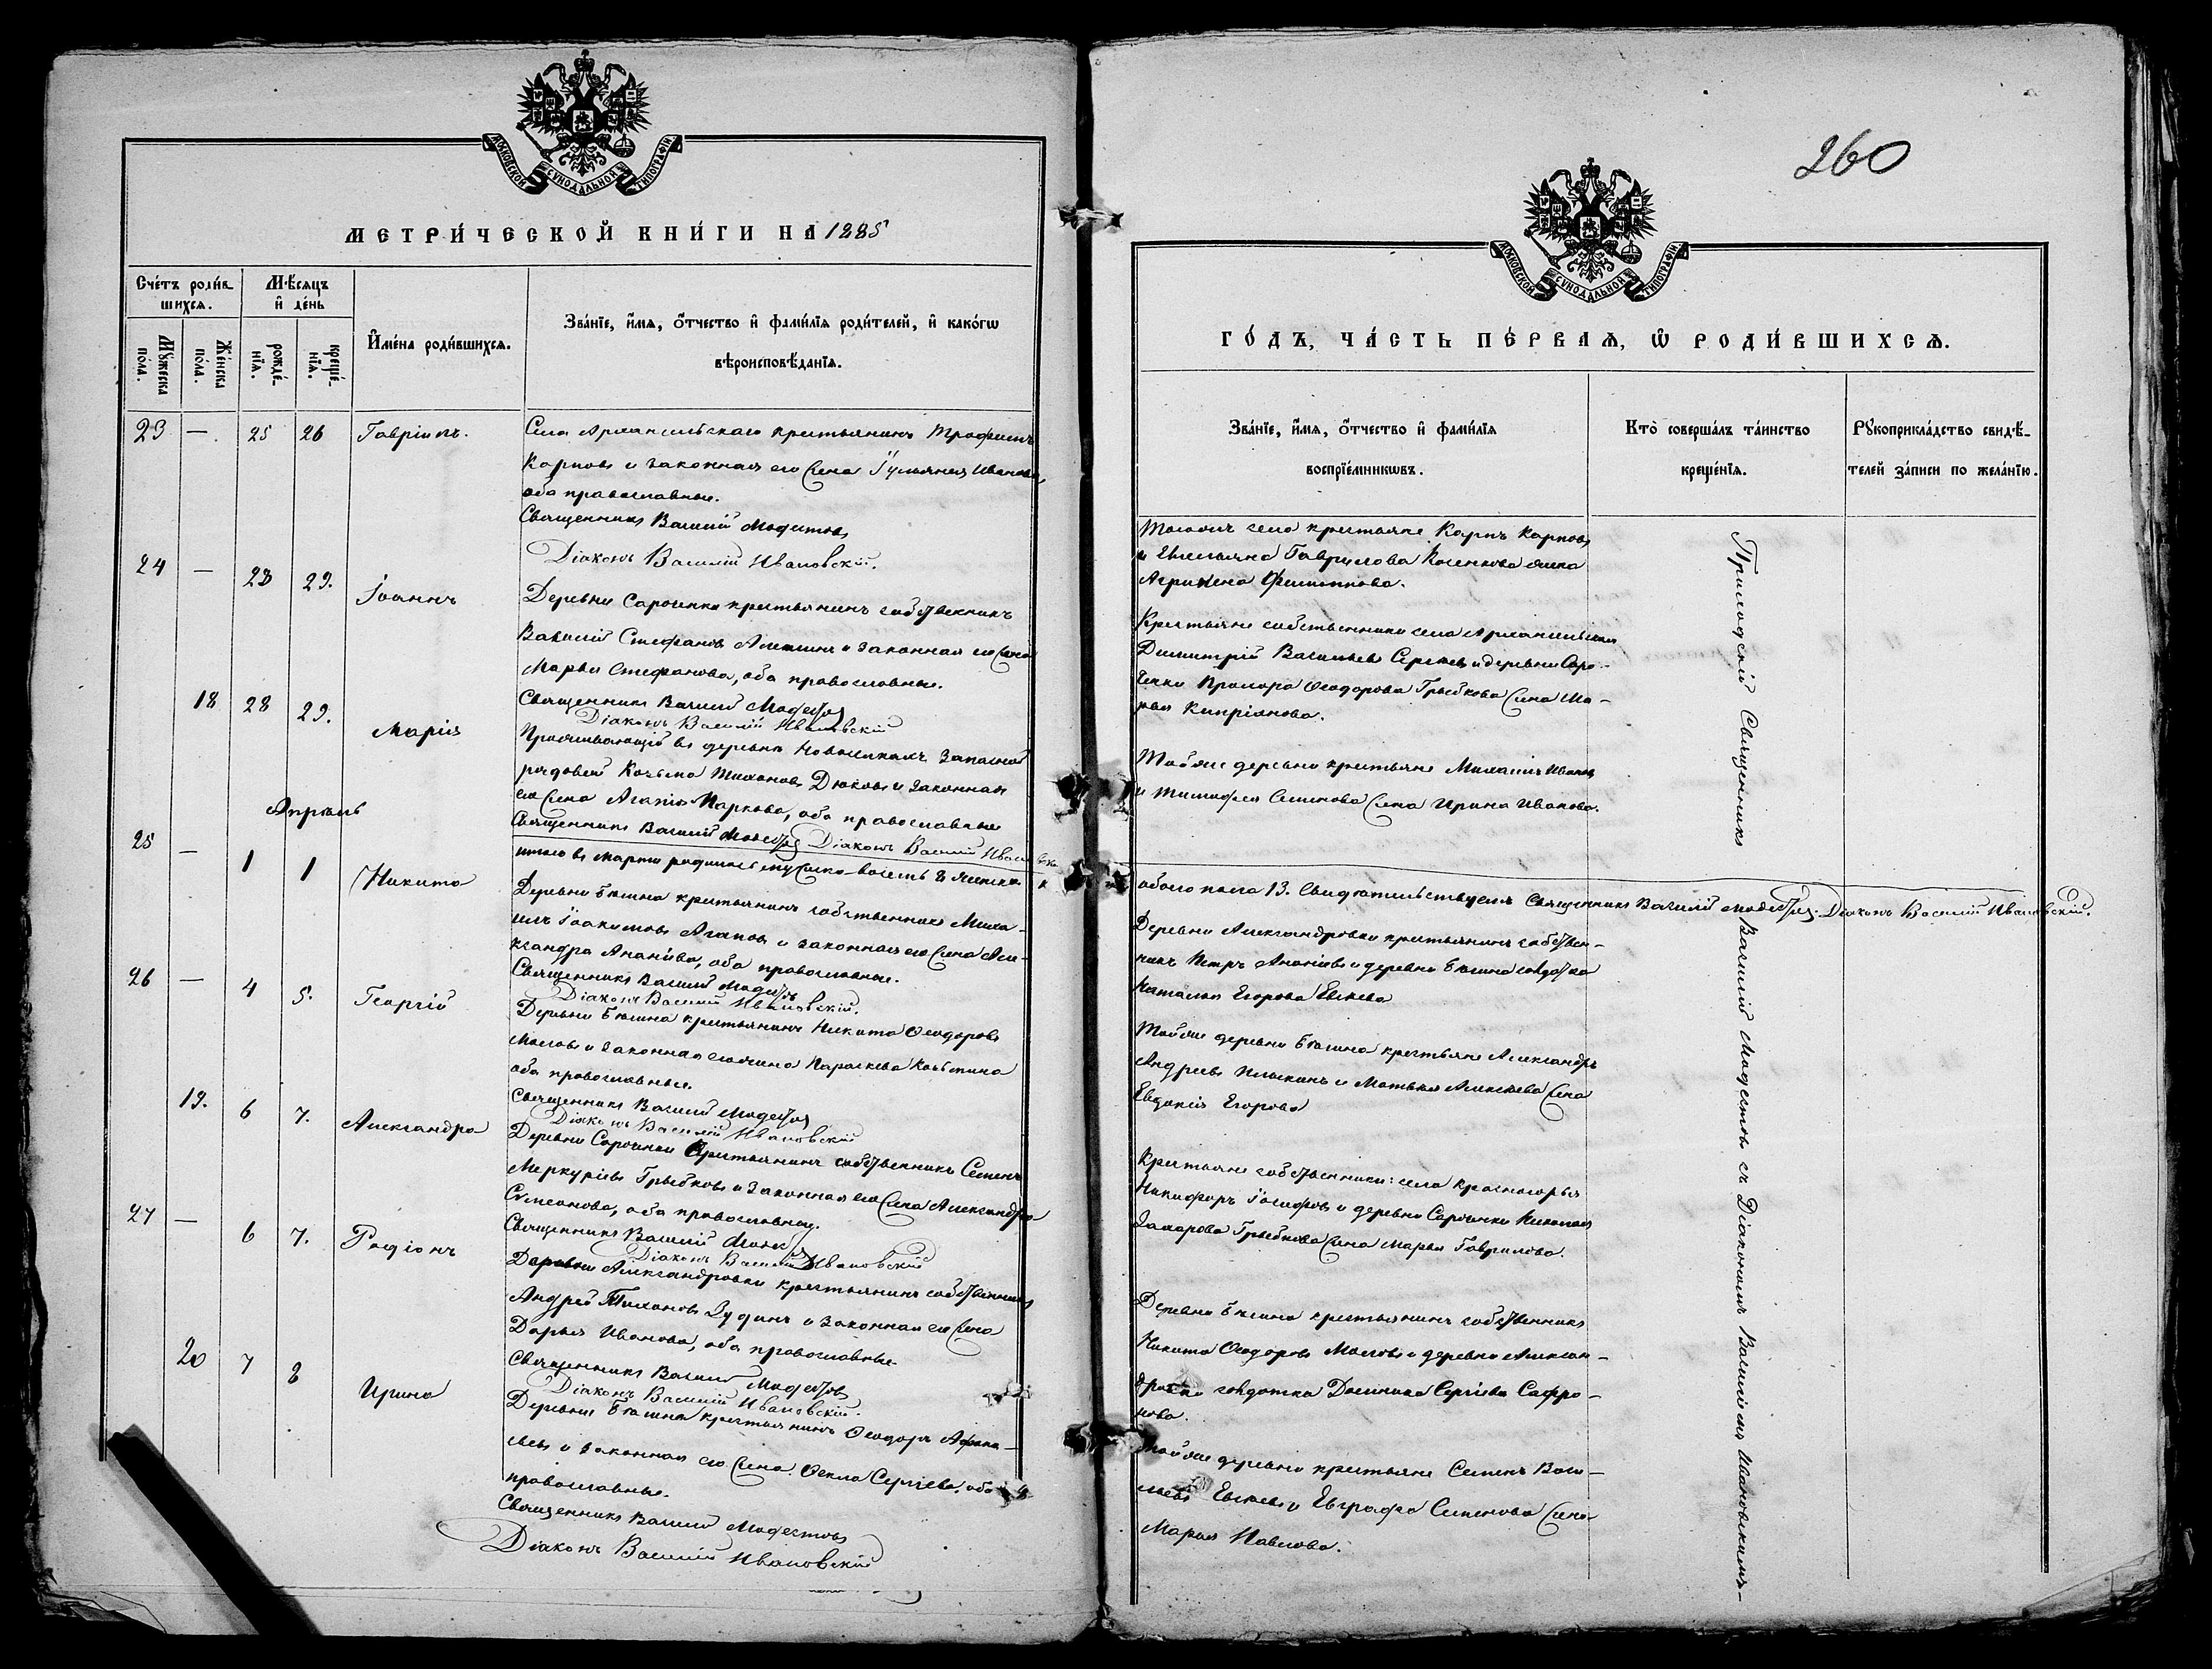 МОСКОВСКОЙ СѴНОДАЛЬНОЙ ТИПОГРАФІИ
МЕТРИ́ЧЕСКОЙ КНИ́ГИ НА 1885
Сче́тъ роди́в-
шихся.
Мѣ́сяцъ
и҆ де́нь
Мꙋ́жеска
по́ла.
Же́нска
по́ла.
рожде́-
нїѧ.
креще́-
нїѧ.
И҆мена̀ роди́вшихсѧ.
Зва́нїе, и҆́мѧ, ѻ҆́тчество и҆ фами́лїѧ роди́телей, и҆ како́гѡ
вѣроисповѣ́данїѧ.
23 — 25 26 Гавріилъ.
Села Архангельскаго крестьянинъ Трофимъ
Карповъ и законная его жена Іуліанія Иванова,
оба православные.
Священникъ Василий Модестовъ
Діаконъ Василій Ивановскій.
24 — 28 29. Іоаннъ
Деревни Сарочинки крестьянинъ собственникъ
Василій Стефановъ и законная его жена
Марья Стефанова, оба православные.
Священникъ Василий Модестовъ
Діаконъ Василій Ивановскій
18 28 29. Марія
Проживающій въ деревне запасной
рядовой Козьма Тихоновъ Дюковъ и законная
его жена Агапія Маркова, оба православные
Священникъ Василий Модестовъ Діаконъ Василій Ивановскій
Апрель
итого въ марте родилось мужеска восемь 8 женска
25 — 1 1 Никита
Деревни крестьянинъ собственникъ Миха-
илъ Іоакимовъ Агаповъ и законная его жена Але-
ксандра Ананьева, оба православные.
Священникъ Василий Модестовъ
Діаконъ Василий Ивановскій.
26 — 4 5. Георгій
Деревни крестьянинъ Никита Ѳеодоровъ
Масловъ и законная его жена Параскева Козьмина
оба православные.
Священникъ Василий Модестовъ
Діаконъ Василій Ивановскій
19. 6 7. Александра
Деревни Сарочинки крестьянинъ собственникъ Семенъ
Меркурьевъ Грыбковъ и законная его жена Александра
Симеонова, оба православные.
Священникъ Василий Модестовъ
Діаконъ Василий Ивановский
27 — 6 7. Родіонъ
Деревни Александровки крестьянинъ собственникъ
Андрей Тихоновъ и законная его жена
Дарья Иванова, оба православные.
Священникъ Василий Модестовъ
Діаконъ Василій Ивановскій.
20 7 8 Ирина
Деревни крестьянинъ Ѳеодоръ Афана-
сьевъ и законная его жена Ѳекла Сергіева, оба
православные.
Священникъ Василий Модестовъ
Діаконъ Василій Ивановскій
260
МОСКОВСКОЙ СѴНОДАЛЬНОЙ ТИПОГРАФІИ
ГО́ДЪ, ЧА́СТЬ ПЕ́РВАѦ, Ѡ҆ РОДИ́ВШИХСѦ.
Зва́нїе, и҆́мѧ, ѻ҆́тчество и҆ фами́лїѧ
воспрїе́мникѡвъ.
Кто̀ соверша́лъ та́инство
креще́нїѧ.
Рꙋкоприкла́дство свидѣ́-
телей за́писи по жела́нїю.
села крестьяне Карпъ Карповъ
и Гаврилова жена
Агрипена Филиппова.
Крестьяне собственники села Архангельскаго
Димитрій Васильевъ и деревни Саро-
чинки Ѳеодорова Грыбкова жена Ма-
рья Кипріанова.
Той же деревни крестьяне Михаилъ Ивановъ
и Тимофея Семенова жена Ирина Иванова.
обоего пола 13. Свидетельствуемъ Священникъ Василій Модестовъ. Діаконъ Василій Ивановскій.
Деревни Александровки крестьянинъ собствен-
никъ Петръ Ананьевъ и деревни солдатка
Наталья Егорова Евсеева
Той же деревни крестьяне Александръ
Андреевъ и Матвея Алексеева жена
Евдокія Егорова
Крестьяне собственники: села Красногорья
Никифоръ Іосифовъ и деревни Сарочинки Николая
Захарова Грыбкова жена Марья Гаврилова.
Деревни крестьянинъ собственникъ
Никита Ѳеодоровъ Масловъ и деревни Алексан-
дровки солдатка Домника Сергіева Сафро-
нова.
Той же деревни крестьяне Семенъ Васи-
льевъ Евсеевъ и Евграфа Семенова жена
Марья Павлова.
Приходскій Священникъ Василій Модестовъ съ Діакономъ Василіемъ Ивановскимъ